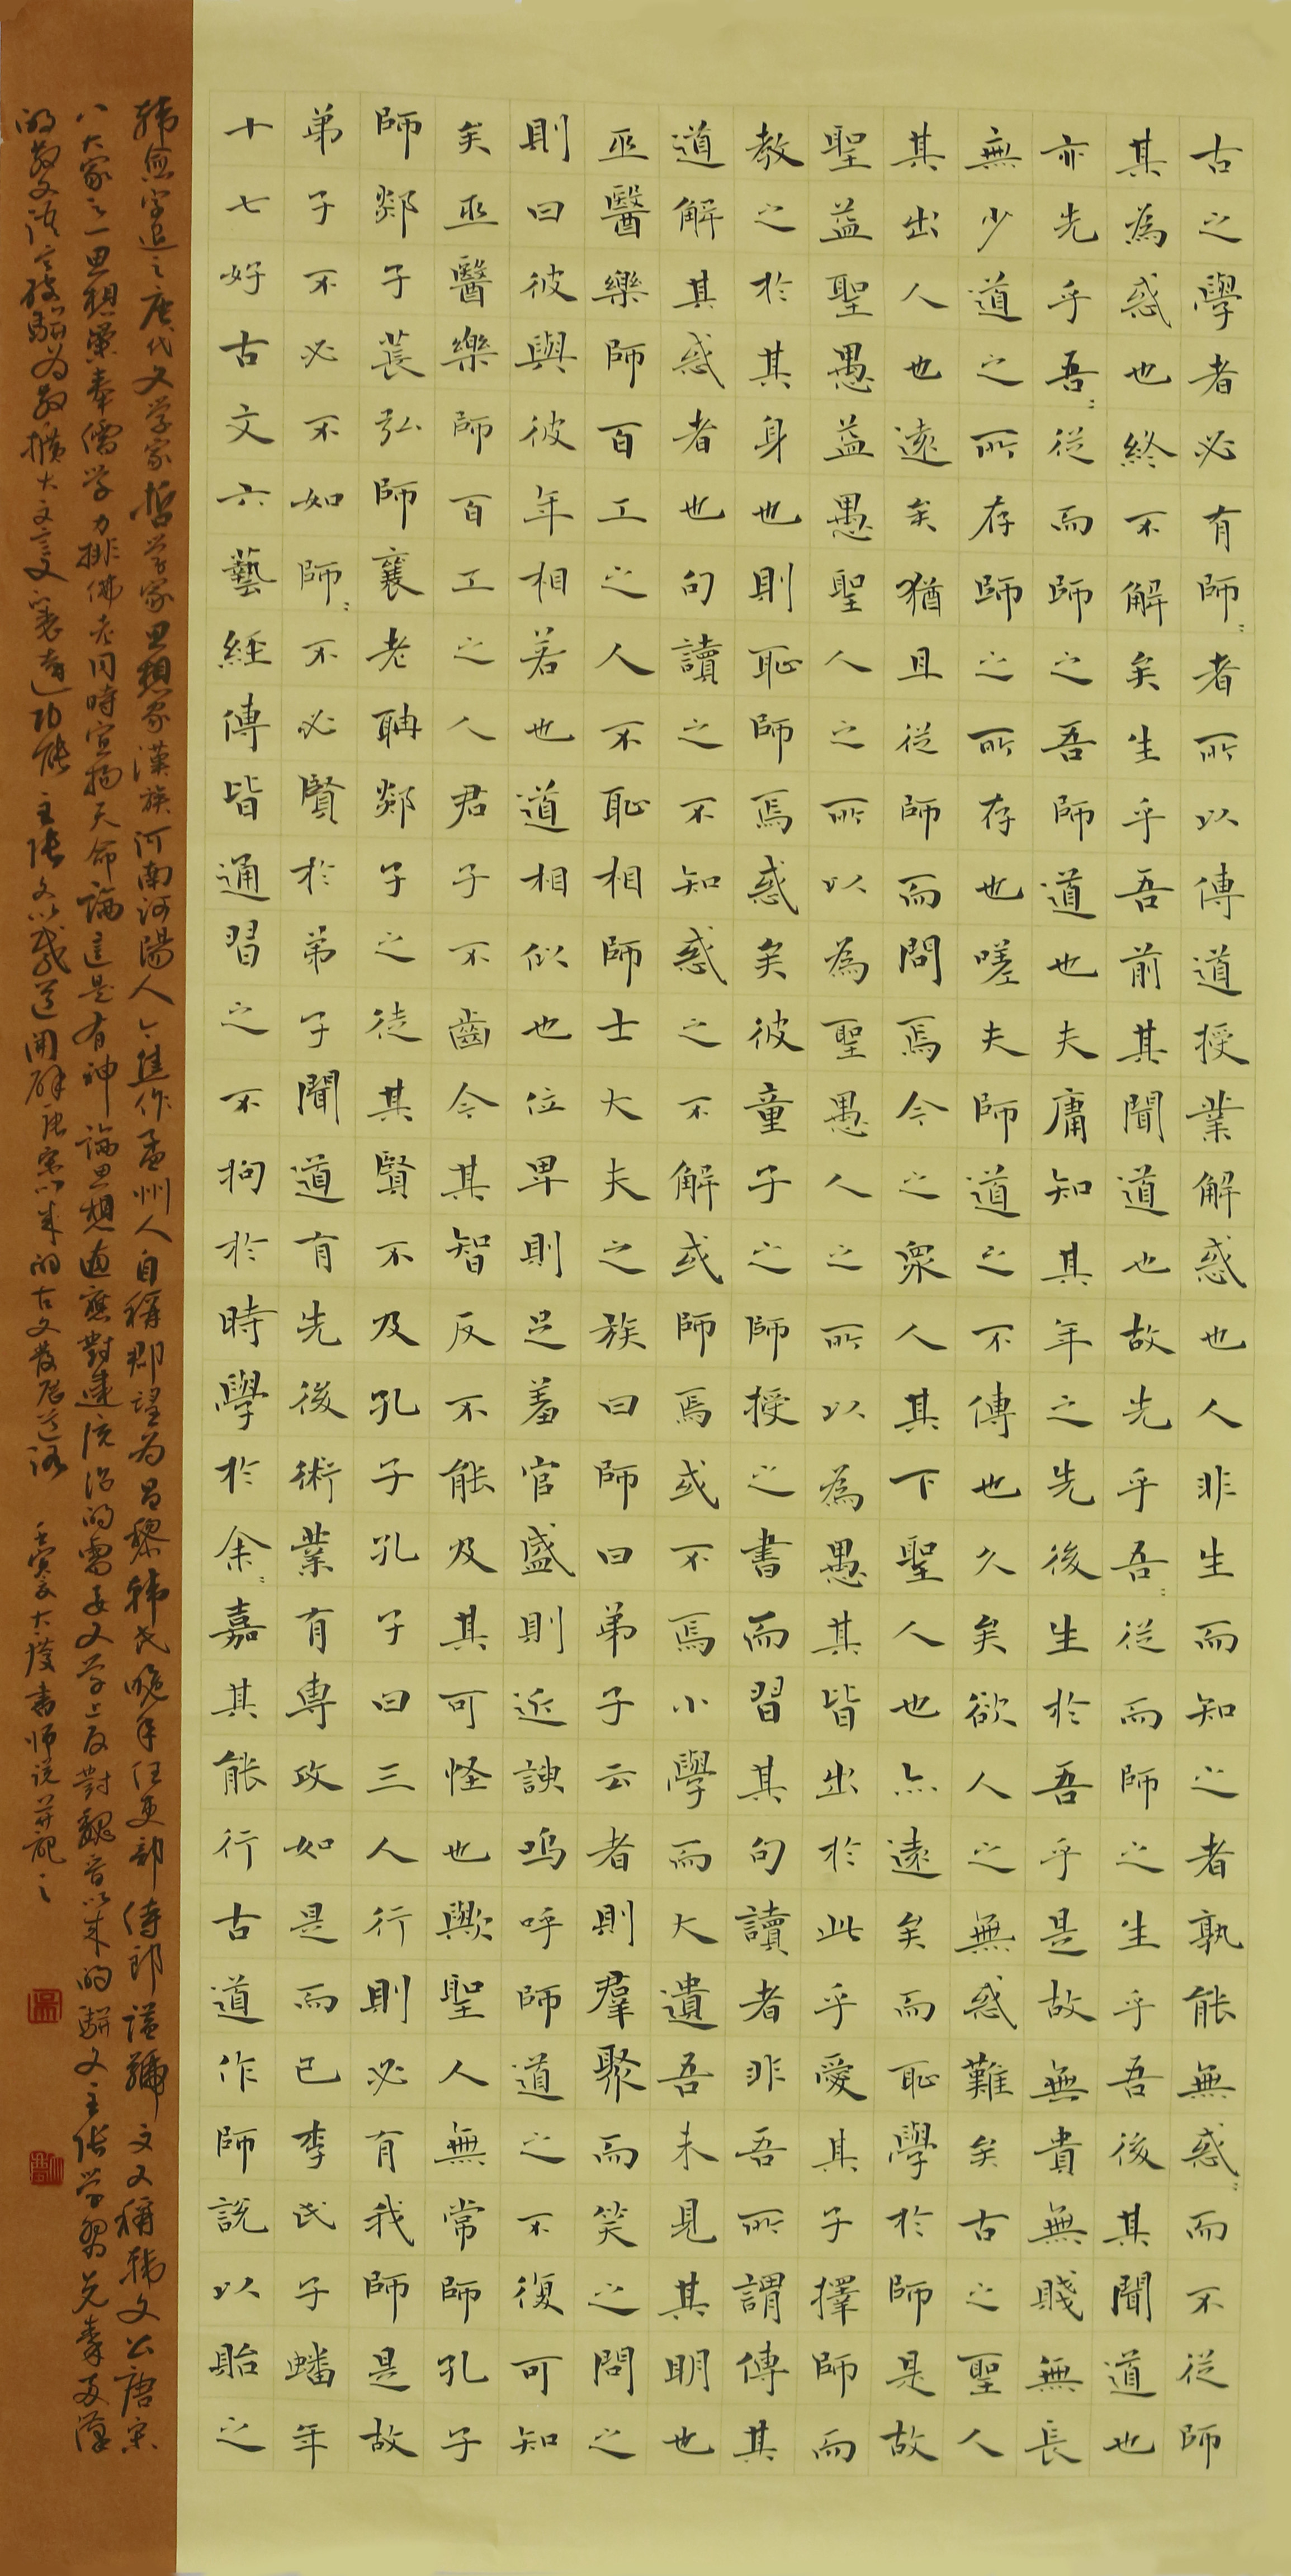 古之學者必有師〻者所以傳道授業解惑也人非生而知之者孰能無惑〻而不從師
其為惑也終不解矣生乎吾前其聞道也故先乎吾〻從而師之生乎吾後其聞道也
亦先乎吾〻從而師之吾師道也夫庸知其年之先後生於吾乎是故無貴無賤無長
無少道之所存師之所存也嗟夫師道之不傳也久矣欲人之無惑難矣古之聖人
其出人也遠矣猶且從師而問焉今之眾人其下聖人也亦遠矣而恥學於師是故
聖益聖愚益愚聖人之所以為聖愚人之所以為愚其皆出於此乎愛其子擇師而
教之於其身也則恥師焉惑矣彼童子之師授之書而習其句讀者非吾所謂傳其
道解其惑者也句讀之不知惑之不解或師焉或不焉小學而大遺吾未見其明也
巫醫樂師百工之人不恥相師士大夫之族曰師曰弟子云者則羣聚而笑之問之
則曰彼與彼年相若也道相似也位卑則足羞官盛則近諛嗚呼師道之不復可知
矣巫醫樂師百工之人君子不齒今其智反不能及其可怪也歟聖人無常師孔子
師郯子萇弘師襄老聃郯子之徒其賢不及孔子孔子曰三人行則必有我師是故
弟子不必不如師〻不必賢於弟子聞道有先後術業有專攻如是而已李氏子蟠年
十七好古文六藝經傳皆通習之不拘於時學於余〻嘉其能行古道作師說以貽之
韩愈字退之唐代文学家哲学家思想家漢族河南河陽人今焦作孟州人自稱郡望为昌黎韩氏晚年任吏部侍郎谥號文又稱韩文公唐宋
八大家之一思想渠奉儒学力排佛老同時宣揚天命論這是有神論思想適應對遠统治的需要文学上反對魏晋以来的駢文主张学習先秦两漢
的散文语言破駢为散擴大文言文表達功能主张文以载道開辟唐宋以来的古文發展道路 大慶書师说并記之